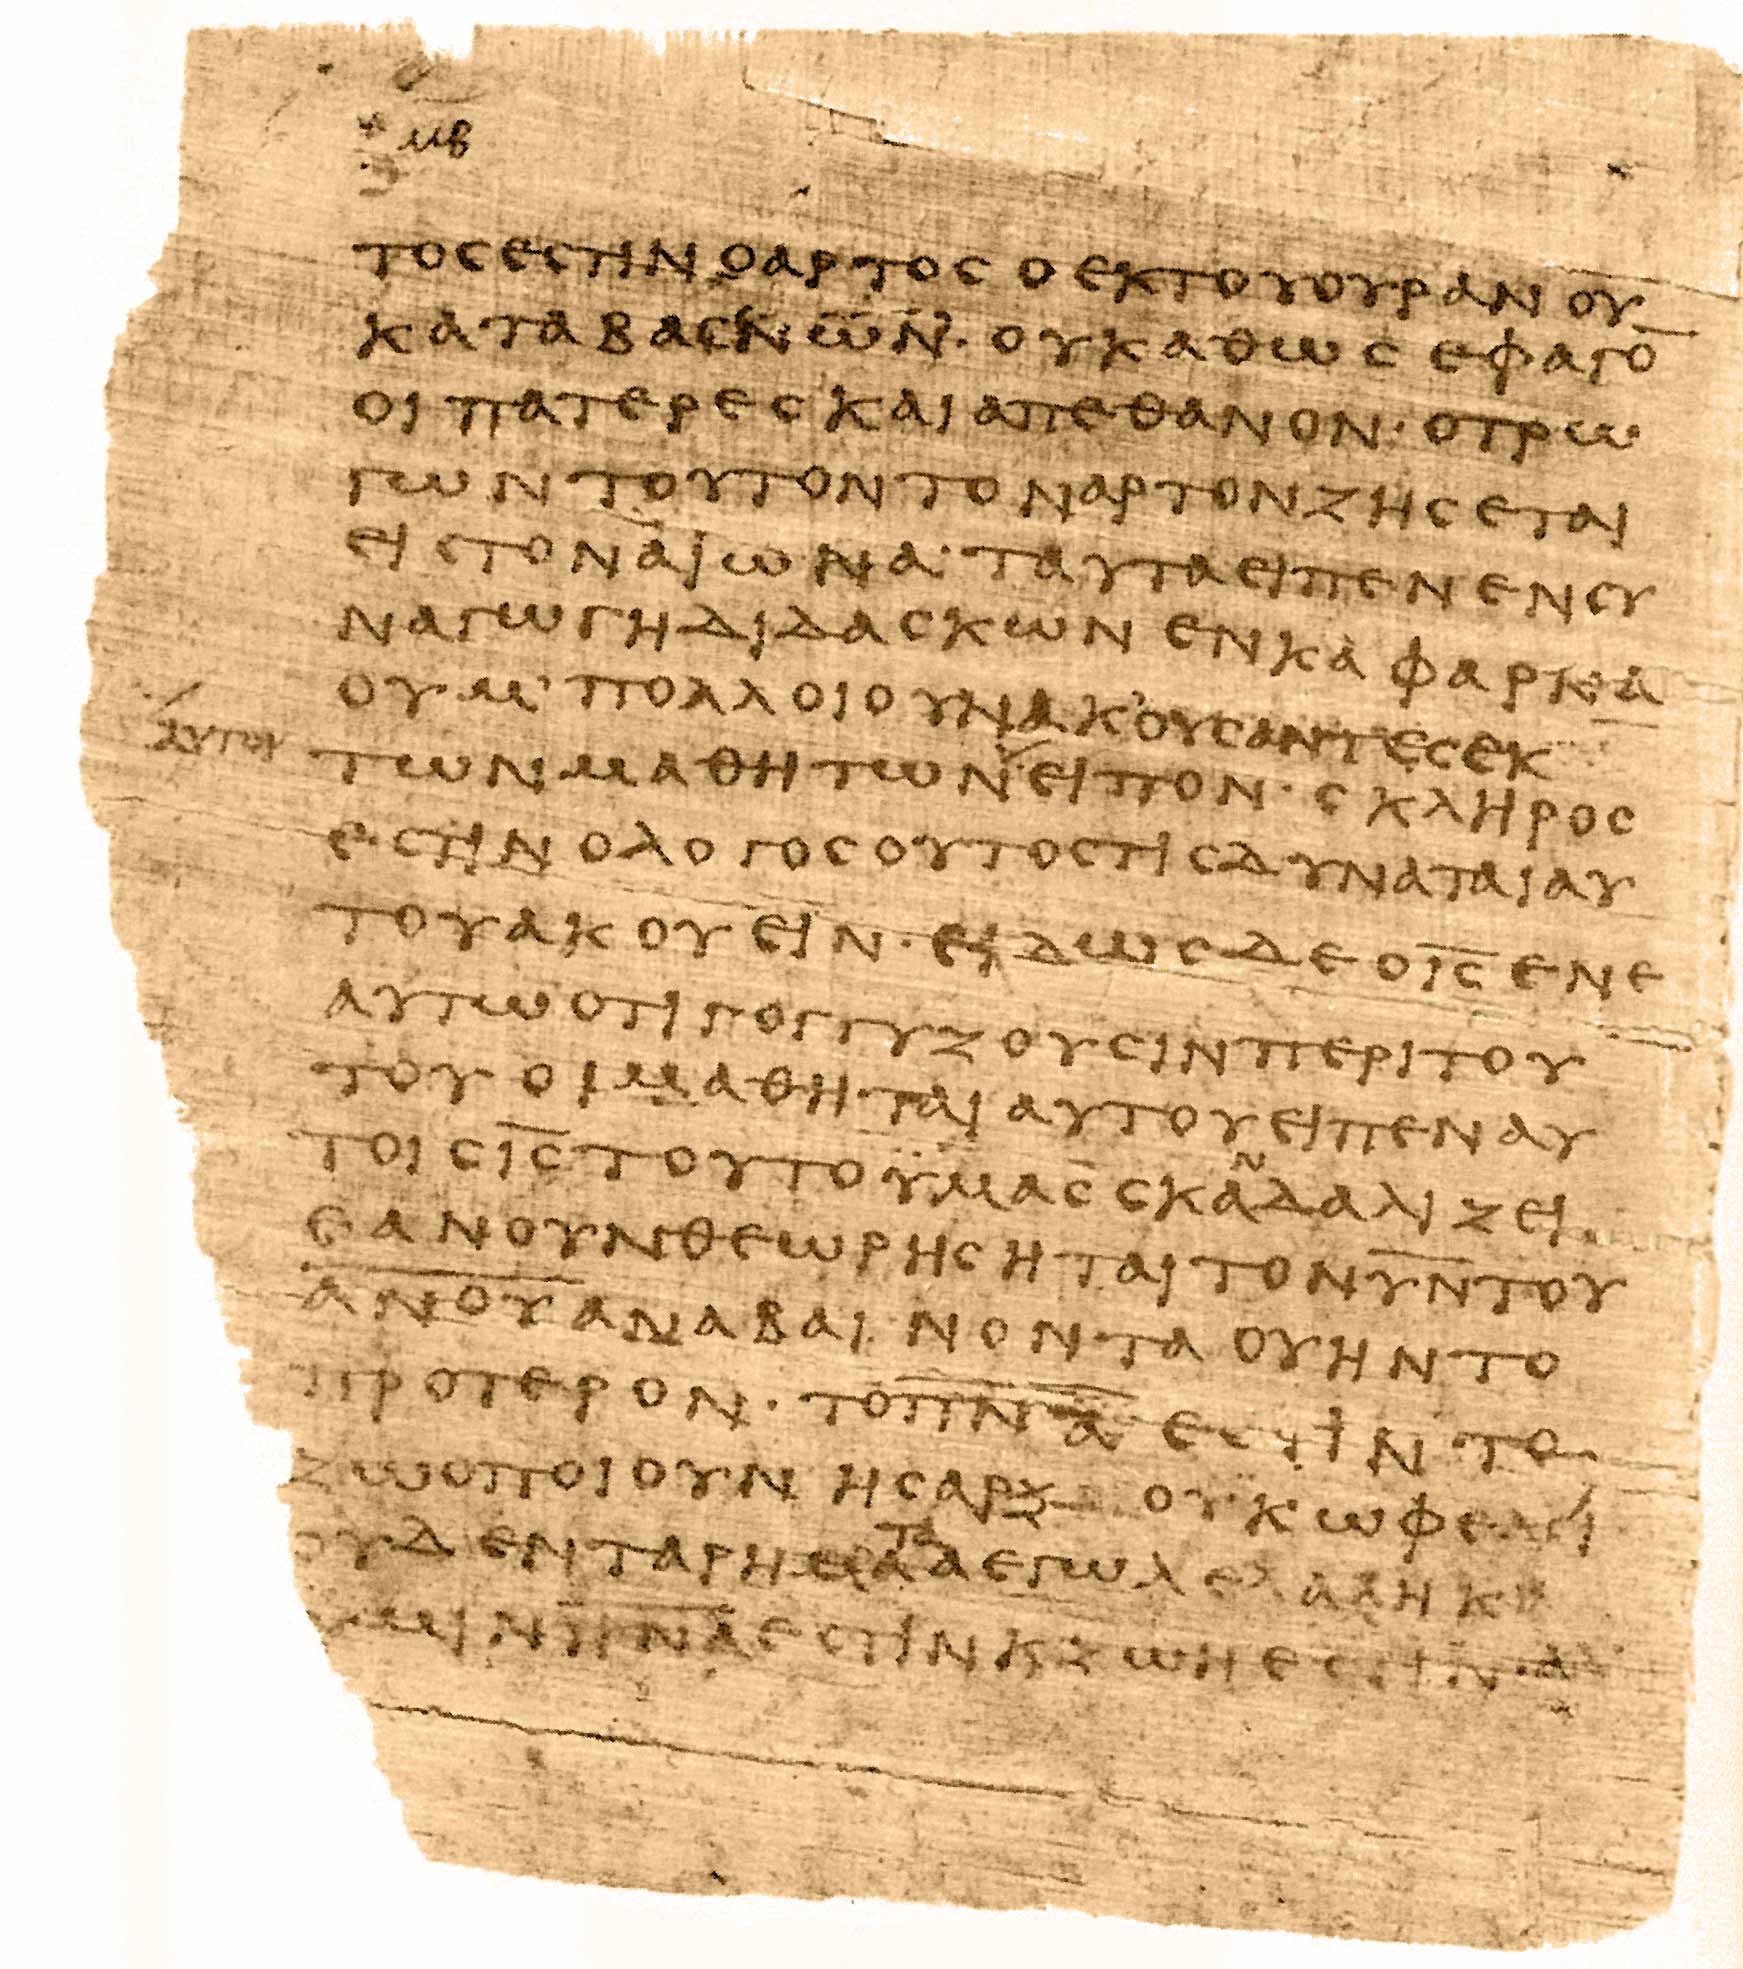 μβ
τοσεστινοαρτοσοεκτουουρανου
καταβασ̀ν̀ω̈ν̈·ουκαθωσεφαγο̅
οιπατερεσκαιαπεθανον·οτρω
γωντουτοντοναρτονζησεται
ειστοναιωνα·ταυταειπενενσυ
ναγωγηδιδασκωνενκαφαρνα
ουμ·πολλοιουνακουσαντεσεκ
αυτου
τωνμαθητων⸍ειπον·σκληροσ
εστινολογοσουτοστισδυναταιαυ
τουακουειν·ειδωσδεοι̅σ̅ενε
αυτωοτιγογγυζουσινπεριτου
τουοιμαθηταιαυτουειπεναυ
τοισι̅σ̅τουτοϋμασσκα`ν´δαλιζει·
εανουνθεωρησηταιτονυ̅ν̅του
α̅ν̅ο̅υ̅αναβαινονταουηντο
προτερον·τοπ̅ν̅α̅εστιντο
ζωοποιουνησαρξουκωφελει
ουδενταρημα`τα´αεγωλελαληκα
υμινπ̅ν̅α̅εστινκζωηεστιν·αλ